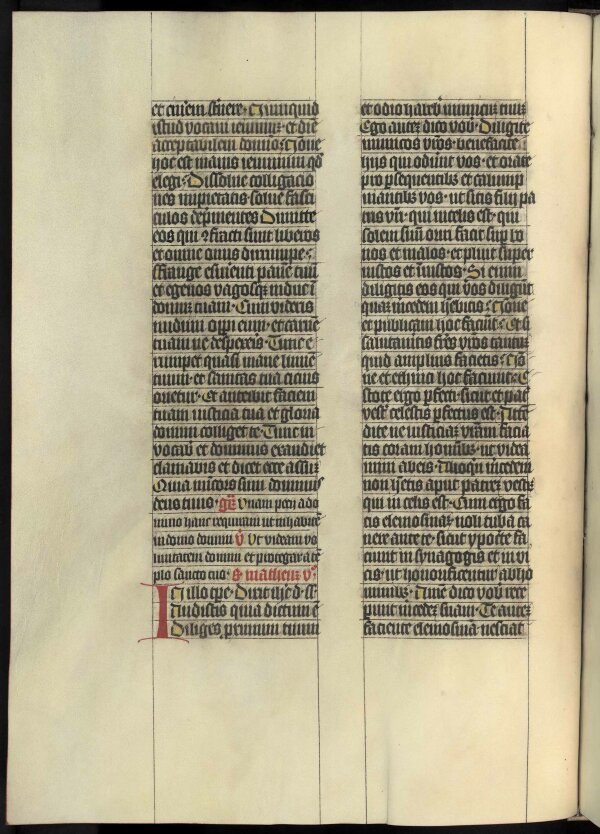 et cinerem sternere. Nunquid
istud vocavi ieiuniū. et diē
acceptabilem domino. Nōne
hoc est maius ieiunium qđ
elegi. Dissolve colligacio
nes impietatis solve fasci
culos deprimentes Dimitte
eos qui ꝯfracti sunt liberos
et omne onus dirumpe.
Frange esurienti panē tuū
et egenos vagosqꝫ induc ī
domū tuam. Cum videris
nudum opi eum. et carnē
tuam ne despexeris. Tunc e
rumpet quasi mane lumē
tuum. et sanitas tua cicius
orietur. Et anteibit faciem
tuam iusticia tua et gloria
domini colliget te. Tunc in
vocab et dominus exaudiet
clamabis et dicet ecce assū
Quia misericors sum dominus
deus tuus. Unam pecii a do
mino hanc requiram ut inhabitē
in domo domini v̄ Ut videam vo
luntatem domini et protegar a tē
plo sancto eius. matheū
In illo tp̄e. Dixit ihc d. sͣ.
Audistis quia dictum ē
Diliges proximum tuum
et odio habeb inimicū tuū
Ego autē dico vob. Diligite
inimicos vr̄os. benefacite
hiis qui oderunt vos. et orate
pro ꝑsequentibꝫ et calump
niantibꝫ vos. ut sitis filii pa
tris vr̄i. qui in celis est. qui
solem suū oriri facit suꝑ bo
nos et malos. et pluit super
iustos et iniustos. Si enim
diligitis eos qui vos diligūt
quā mercedem hēbitis. Nōne
et publicani hoc faciūt. Et si
salutaveritis frēs vr̄os tantū
quid amplius facietis. Nō
ne et ethnici hoc faciunt. E
stote ergo ꝑfecti. sicut et pat̄
vest̄ celestis ꝑfectus est. Atten
dite ne iusticiā vr̄am facia
tis coram homībꝫ. ut videa
mini ab eis. Alioqn̄ mercedem
non hēbitis aput patrē vestrū
qui in celis est. Cum ergo fa
cis elemosinā. noli tuba ca
nere ante te. sicut ypocite fa
ciunt in synagogis et in vi
cis. ut honorificentur ab ho
minibꝫ. Amē dico vob rece
perunt mercedē suam. Te autē
faciente elemosinā nesciat